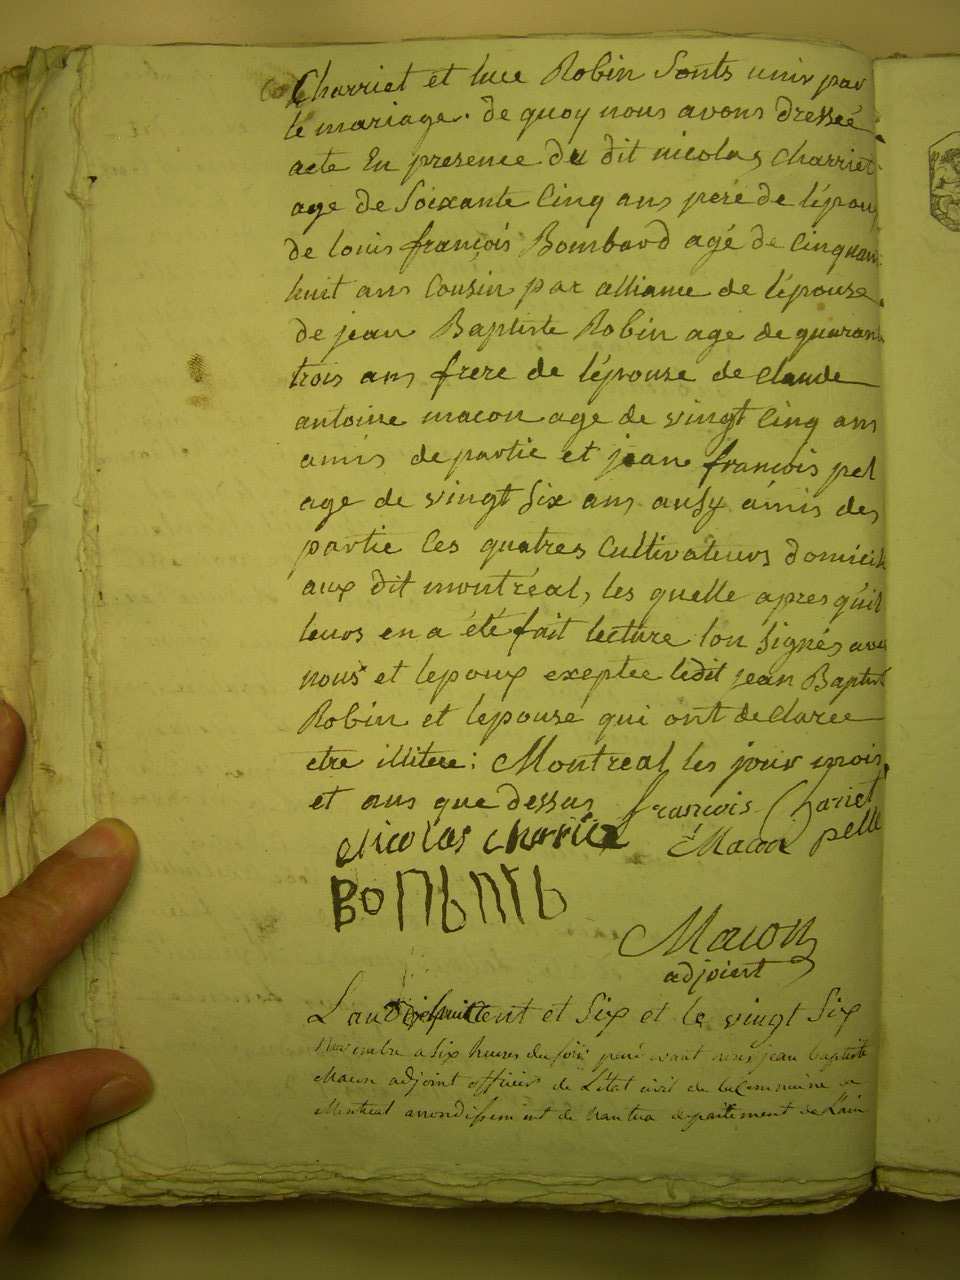 Charriet et luce Robin Sonts unir par
le mariage. de quoy nous avons dressée
acte En presence du dit nicolas Charriet
age de Soixante Cinq ans peré de lépoux
de louis françois Bombard agé de Cinquan
huit ans Cousin par alliance de lépouse
de jean Baptiste Robin age de quaran
trois ans frere de lépouse de Claude
antoine macon age de vingt Cinq ans
amis de partie et jean francois pel
age de vingt Six ans ausy amis des
partie Ces quatres Cultivateurs domicil
aux dit montréal, les quelle apres quil
leurs en a été fait lecture lon Signés avec
nous et lepoux exeptée ledit jean Baptist
Robin et lepouse qui ont declaree
etre illitere: Montreal les jour mois
et ans que dessus françois Chariet
Nicolas charriet Macon pelle
BOMBARD
Macon
adjoient
L'an Dixhuit Cent et Six et le vingt Six
Novembre a Six heures du soir pard evant nous jean baptiste
Macon adjoint officier de L'état civil de la Commune de
Montreal arrondissement de nantua departement de L'ain